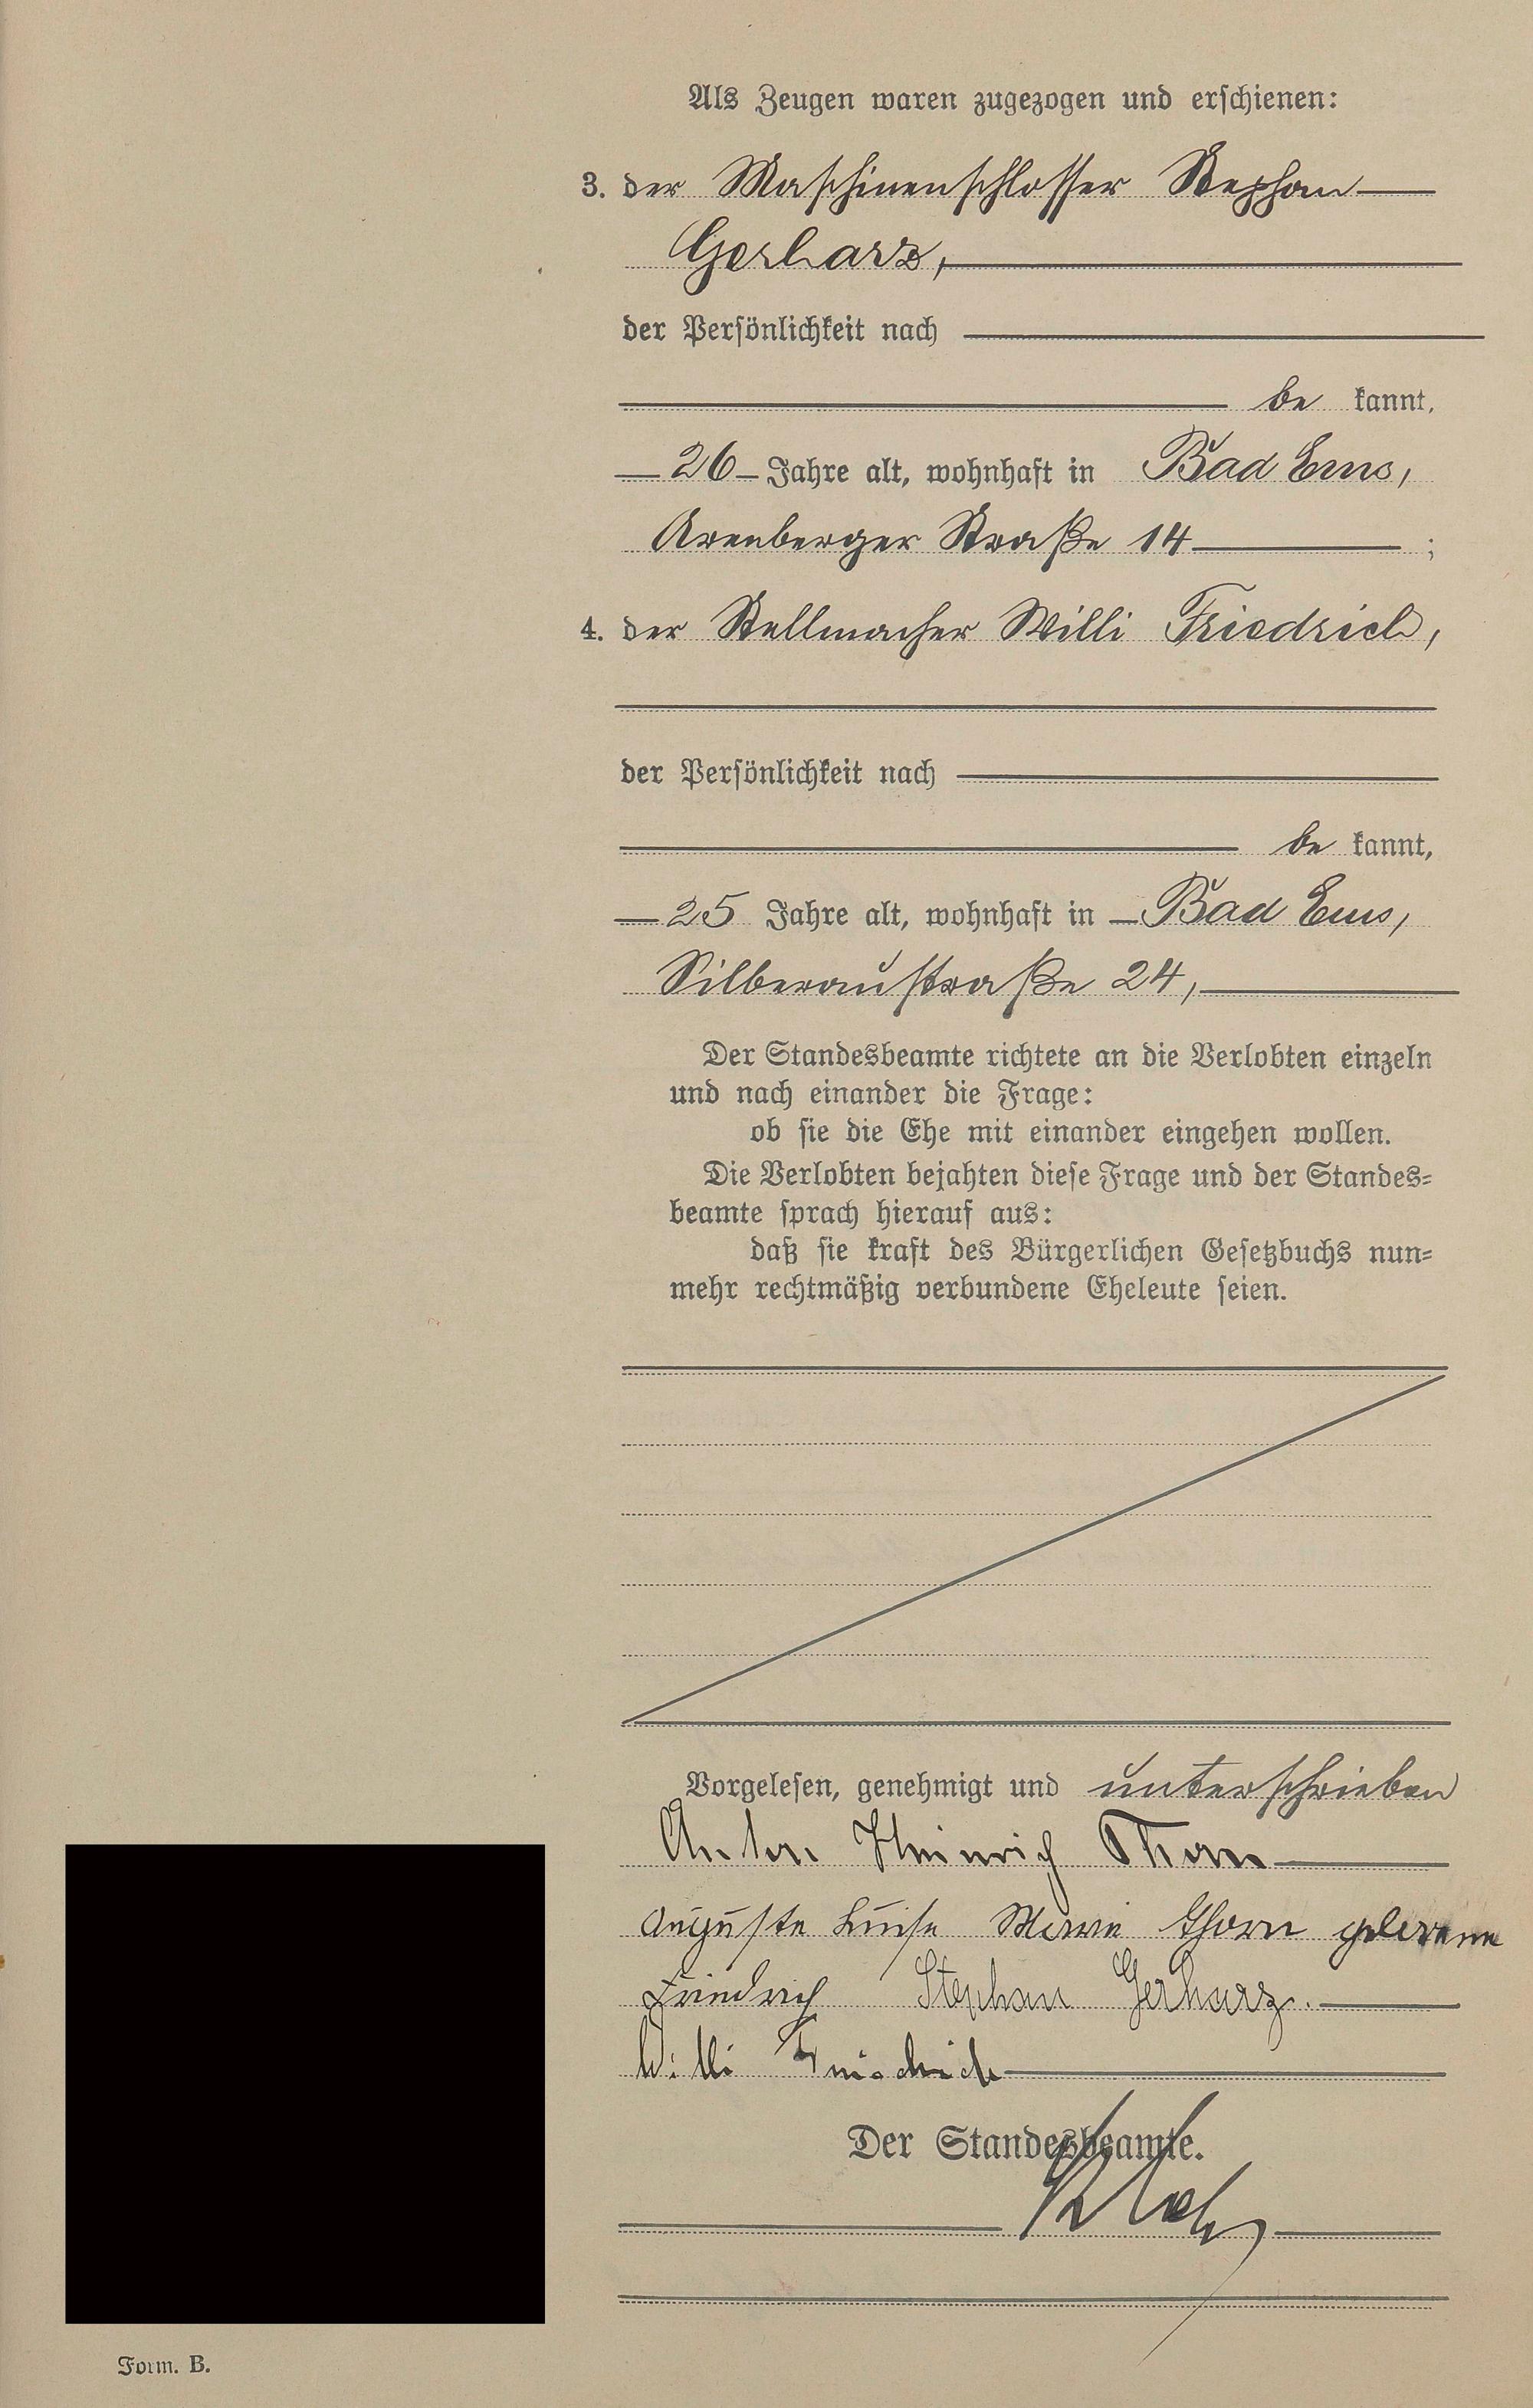 Als Zeugen waren zugezogen und erschienen:
3. der Maschinenschlosser Stephan
Gerharz,
der Persönlichkeit nach
be kannt,
26 Jahre alt, wohnhaft in Bad Ems,
Arenberger Straße 14 ;
4. der Stellmacher Willi Friedrich,
der Persönlichkeit nach
be kannt,
25 Jahre alt, wohnhaft in Bad Ems,
Silberaustraße 24,
Der Standesbeamte richtete an die Verlobten einzeln
und nach einander die Frage:
ob sie die Ehe mit einander eingehen wollen.
Die Verlobten bejahten diese Frage und der Standes-
beamte sprach hierauf aus:
daß sie kraft des Bürgerlichen Gesetzbuchs nun-
mehr rechtmäßig verbundene Eheleute seien.
Vorgelesen, genehmigt und unterschrieben
Anton Heinrich Thorn
Auguste Luise Marie Thorn geborene
Friedrich Stephan Gerharz.
Willi Friedrich
Der Standesbeamte.
Form. B.